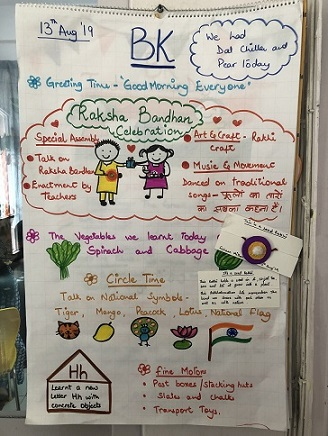 13th Aug '19
BK
We had
Dal Chilla and
Pear Today
Greeting Time - "Good Morning Everyone"
Raksha Bandhan
Celebration
Special Assembly
• Talk on
Raksha Bandhan
• Enactment by
Teachers
• Art & Craft - Rakhi
craft
• Music & Movement
Danced on traditional
songs - फूलों का तारों
का सबका कहना है
The Vegetables we learnt Today
Spinach and Cabbage
Circle Time
Talk on National Symbols -
Tiger, Mango, Peacock, Lotus, National Flag
Hh
Learnt a new
Letter Hh with
concrete objects
Fine Motors
• Post boxes / Stacking huts
• Slates and chalks
• Transport Toys.